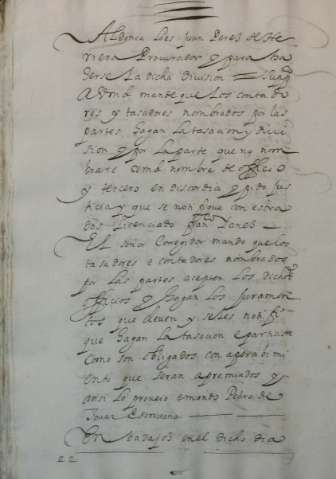 Al donca Lões Juan Peres de he
rrera Procurador y para ha
derse La dicha division
A Vmd mande que Los contado
res y tasadores nombrados por las
partes, hagan La tasacion y divi
sion y por La parte que no nom
brare Vmd nombre de officio
y tercero en discordia y pido jus
ticia y que se notifique con estra
dos Licenciado
El señor Corregidor mando que los
tasadores e contadores nombrados
por Las partes acepten Los dichos
officios y hagan Los Juramen
tos que deven y se les notifique
que hagan La tasacion e
Como son obligados con apercibimi
ento que seran apremiados y
ansi Lo proveio e mando Pedro de
Tovar Escrivano
En badajos en el dicho dia
22